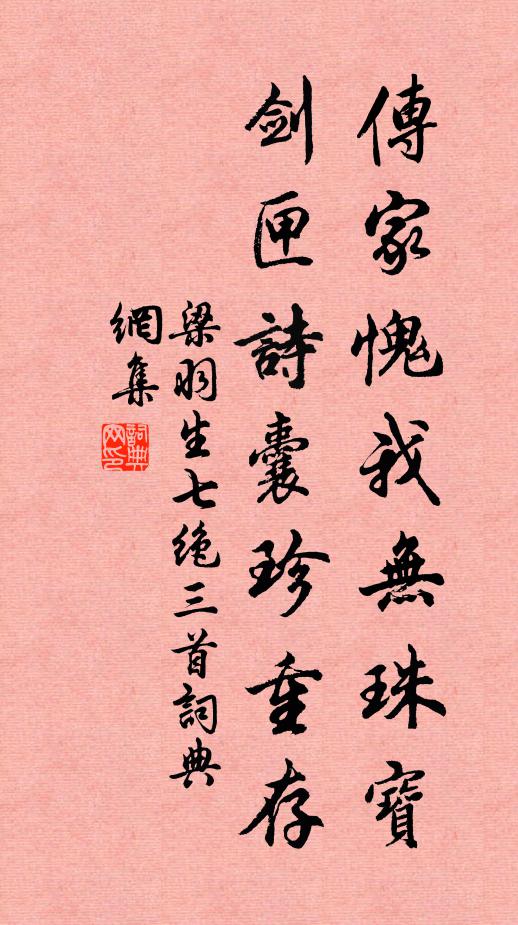 傳家愧我無珠寶
劍匣詩囊珍重存
梁羽生七絶三首詞典
網集
詞典
网印